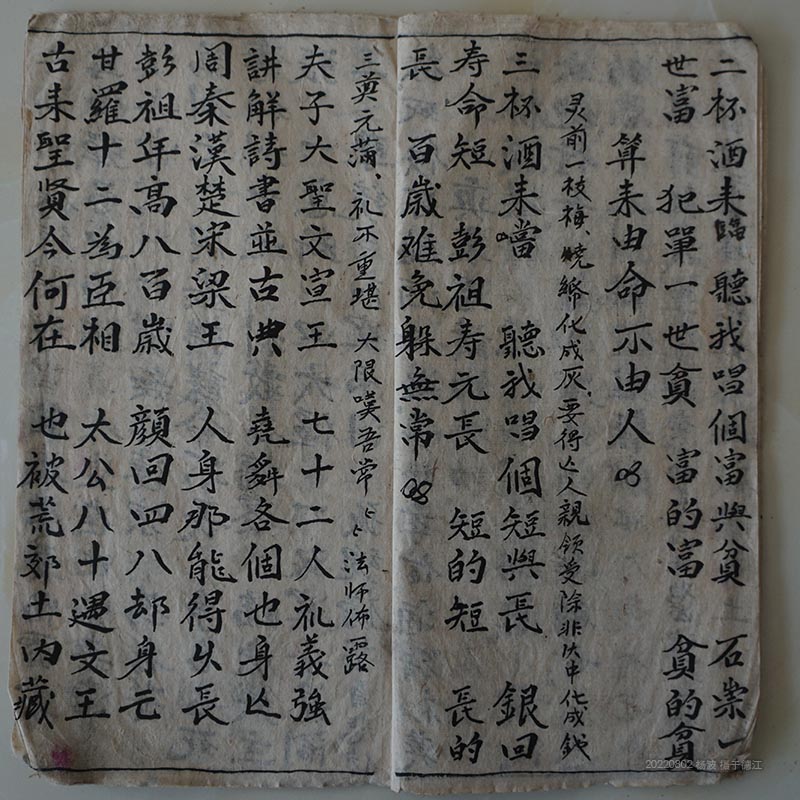 二杯酒来臨 聽我唱個富與貧 石崇一
世富 犯單一世貧 富的富 貧的貧
算来由命不由人
灵前一枝梅、燒綿化成灰、要得亡人親領受除非火中化成钱
三杯酒来噹 聽我唱個短與長 銀回
寿命短 彭祖寿元長 短的短 長的
長 百歲难免躲無常
三奠元满、礼不重堪 大限嘆吾常 法师佈露
夫子大聖文宣王 七十二人礼義強
講解詩書並古典 堯舜各個也身亡
周秦漢楚宋梁王 人身那能得久長
彭祖年高八百歲 顏回四八却身亡
甘羅十二為臣相 太公八十遇文王
古来聖賢今何在 也被荒郊土内藏
20220802 杨波 摄于德江